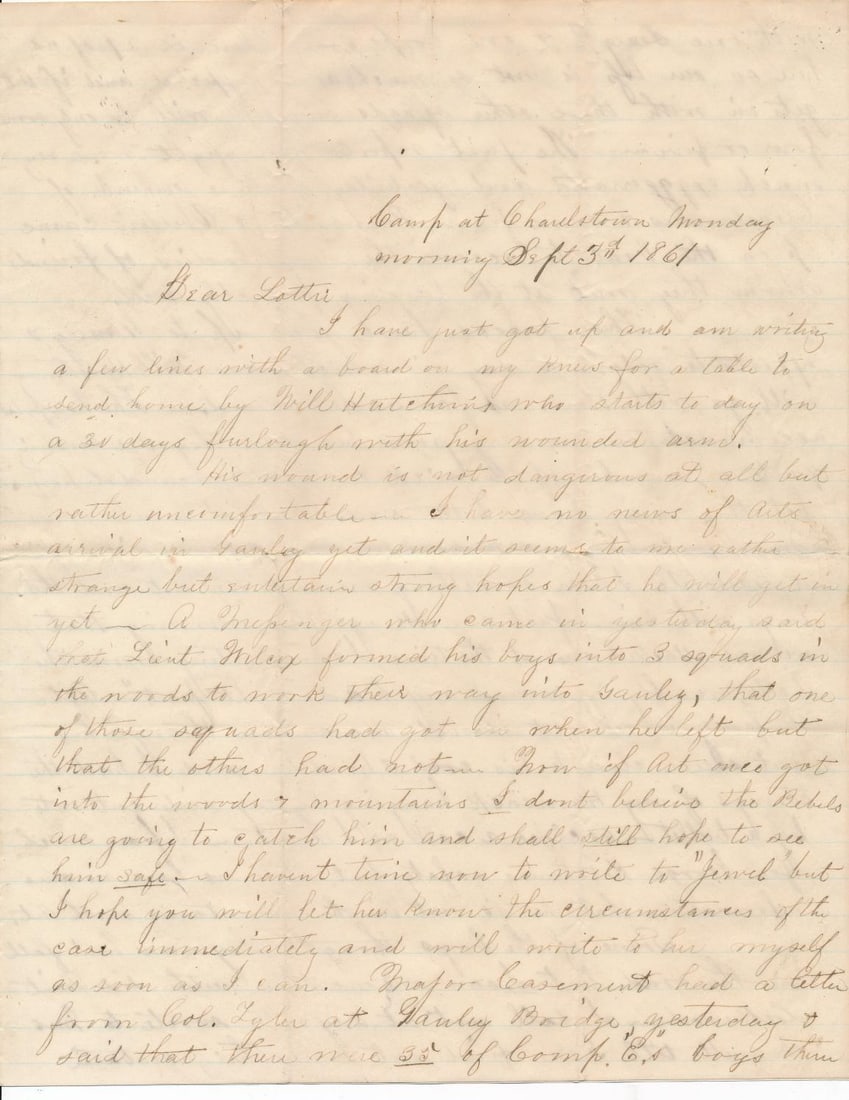 Camp at Charlstown Monday
morning Sept 3d 1861
Dear Lottie
I have just got up and am writing
a few lines with a board on my knees for a table to
send home by Will Hutchins who starts to day on
a 30 days furlough with his wounded arm.
His wound is not dangerous at all but
rather uncomfortable — I have no news of Arts
arrival in Gauley yet and it seems to me rather
strange but entertain strong hopes that he will get in
yet — A Messenger who came in yesterday said
that Lieut Wilcox formed his boys into 3 squads in
the woods to work their way into Gauley, that one
of those squads had got in when he left but
that the others had not — Now if Art once got
into the woods & mountains I dont believe the Rebels
are going to catch him and shall still hope to see
him safe — I havent time now to write to "Jewel" but
I hope you will let her know the circumstances of the
case immediately and will write to her myself
as soon as I can. Major Casement had a letter
from Col. Tyler at Gauley Bridge, yesterday &
said that there were 35 of Comp. "E,"s boys there